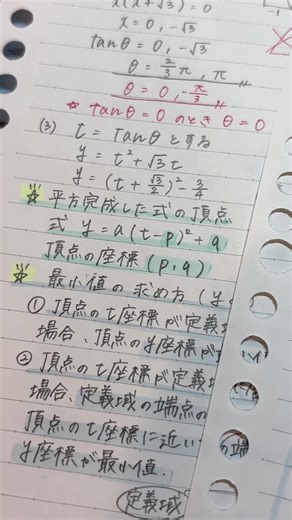 x(x+√3)=0
x=0, -√3
tanθ=0, -√3
θ=2/3π, π
θ=0, -π/3
☆ tanθ=0 のとき θ=0
(3) t=tanθ とする
y=t²+√3t
y=(t+√3/2)²-3/4
☆ 平方完成した式の頂点
式 y=a(t-p)²+q
頂点の座標 (p,q)
☆ 最小値の求め方 (
① 頂点のt座標が定義域
場合、頂点のy座標が
② 頂点のt座標が定義域
場合、定義域の端点の
頂点のt座標に近い の端
y座標が最小値.
定義域